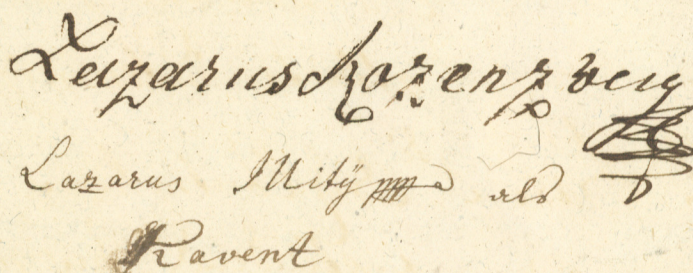 Lazarus Rozenzweig
Lazarus Mitÿ als
Kavent